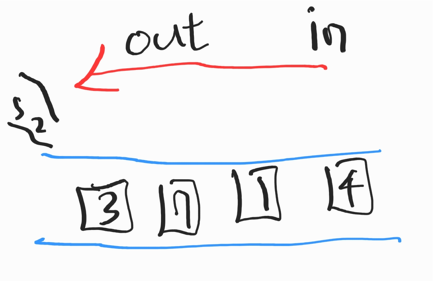 out in
52
3 7 1 4